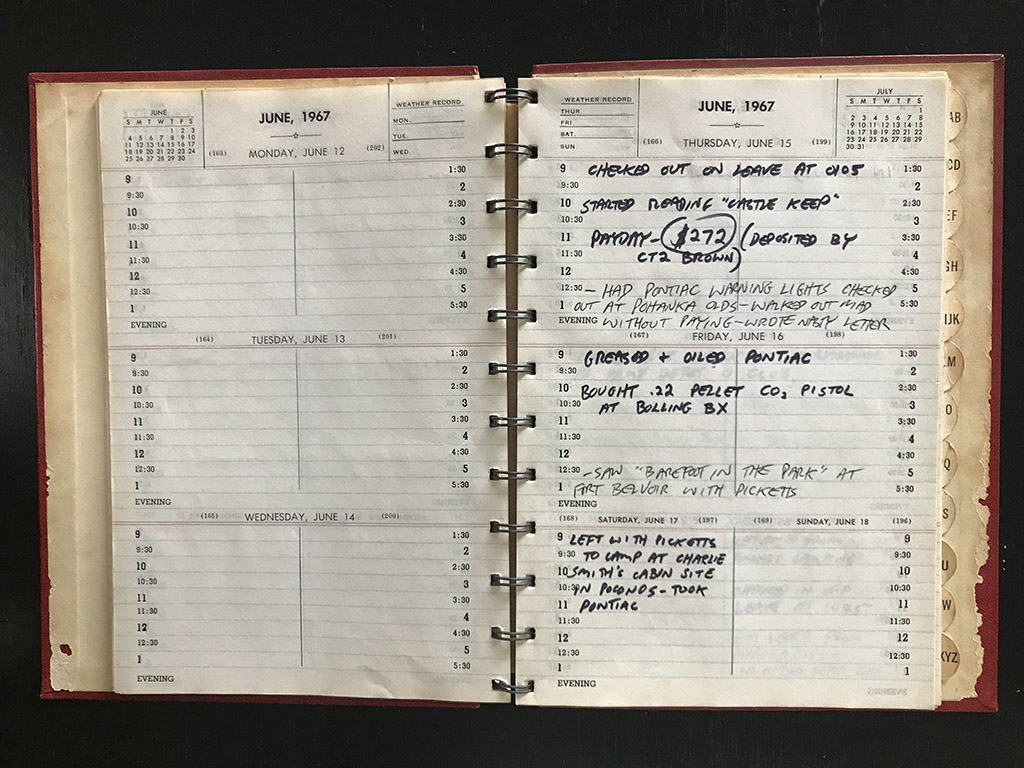 JUNE
S M T W T F S
1 2 3
4 5 6 7 8 9 10
11 12 13 14 15 16 17
18 19 20 21 22 23 24
25 26 27 28 29 30
JUNE, 1967
WEATHER RECORD
MON.
TUE.
WED.
(163) MONDAY, JUNE 12 (202)
9 1:30
9:30 2
10 2:30
10:30 3
11 3:30
11:30 4
12 4:30
12:30 5
1 5:30
EVENING
(164) TUESDAY, JUNE 13 (201)
9 1:30
9:30 2
10 2:30
10:30 3
11 3:30
11:30 4
12 4:30
12:30 5
1 5:30
EVENING
(165) WEDNESDAY, JUNE 14 (200)
9 1:30
9:30 2
10 2:30
10:30 3
11 3:30
11:30 4
12 4:30
12:30 5
1 5:30
EVENING
WEATHER RECORD
THUR.
FRI.
SAT.
SUN
JUNE, 1967
JULY
S M T W T F S
1
2 3 4 5 6 7 8
9 10 11 12 13 14 15
16 17 18 19 20 21 22
23 24 25 26 27 28 29
30 31
(166) THURSDAY, JUNE 15 (199)
9 CHECKED OUT ON LEAVE AT 0105 1:30
9:30 2
10 STARTED READING "CASTLE KEEP" 2:30
10:30 3
11 PAYDAY - $272 (DEPOSITED BY 3:30
11:30 CT2 BROWN) 4
12 4:30
12:30 - HAD PONTIAC WARNING LIGHTS CHECKED 5
1 OUT AT POHANKA OLDS - WALKED OUT MAD 5:30
EVENING WITHOUT PAYING - WROTE NASTY LETTER
(167) FRIDAY, JUNE 16 (198)
9 GREASED + OILED PONTIAC 1:30
9:30 2
10 BOUGHT .22 PELLET CO2 PISTOL 2:30
10:30 AT BOLLING BX 3
11 3:30
11:30 4
12 4:30
12:30 - SAW "BAREFOOT IN THE PARK" AT 5
1 FORT BELVOIR WITH PICKETTS 5:30
EVENING
(168) SATURDAY, JUNE 17 (197) (169) SUNDAY, JUNE 18 (196)
9 LEFT WITH PICKETTS 9
9:30 TO CAMP AT CHARLIE 9:30
10 SMITH'S CABIN SITE 10
10:30 IN POCONOS - TOOK 10:30
11 PONTIAC 11
11:30 11:30
12 12
12:30 12:30
1 1
EVENING
AB
CD
EF
GH
IJK
LM
O
PQ
S
U
W
XYZ